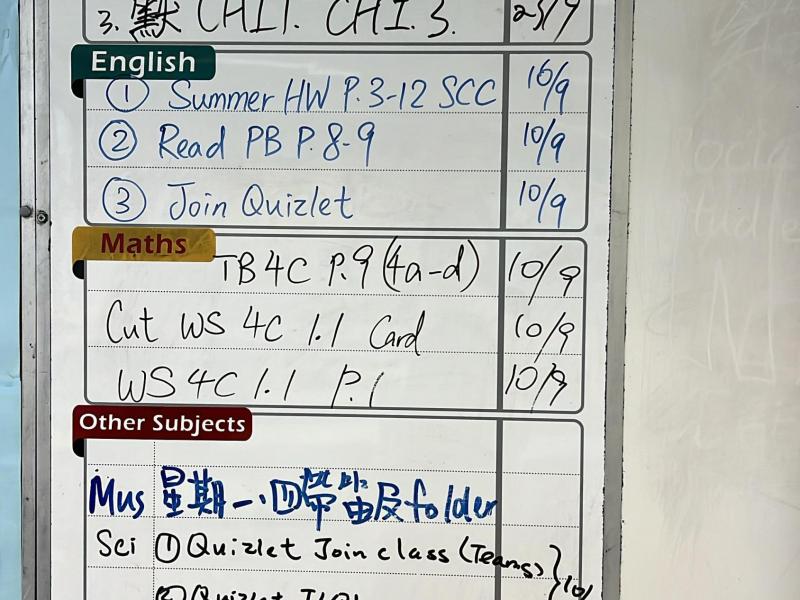 3. 默 CH.1. CH.3. 25/9
English
① Summer HW P.3-12 SCC 16/9
② Read PB P.8-9 10/9
③ Join Quizlet 10/9
Maths
TB 4C P.9 (4a-d) 10/9
Cut WS 4C 1.1 Card 10/9
WS 4C 1.1 P.1 10/9
Other Subjects
Mus 星期一、四帶 及folder
Sci ① Quizlet Join class (Teams) } 10/
② Quizlet